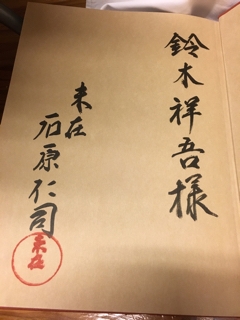 鈴木祥吾様
未在
石原仁司
未在